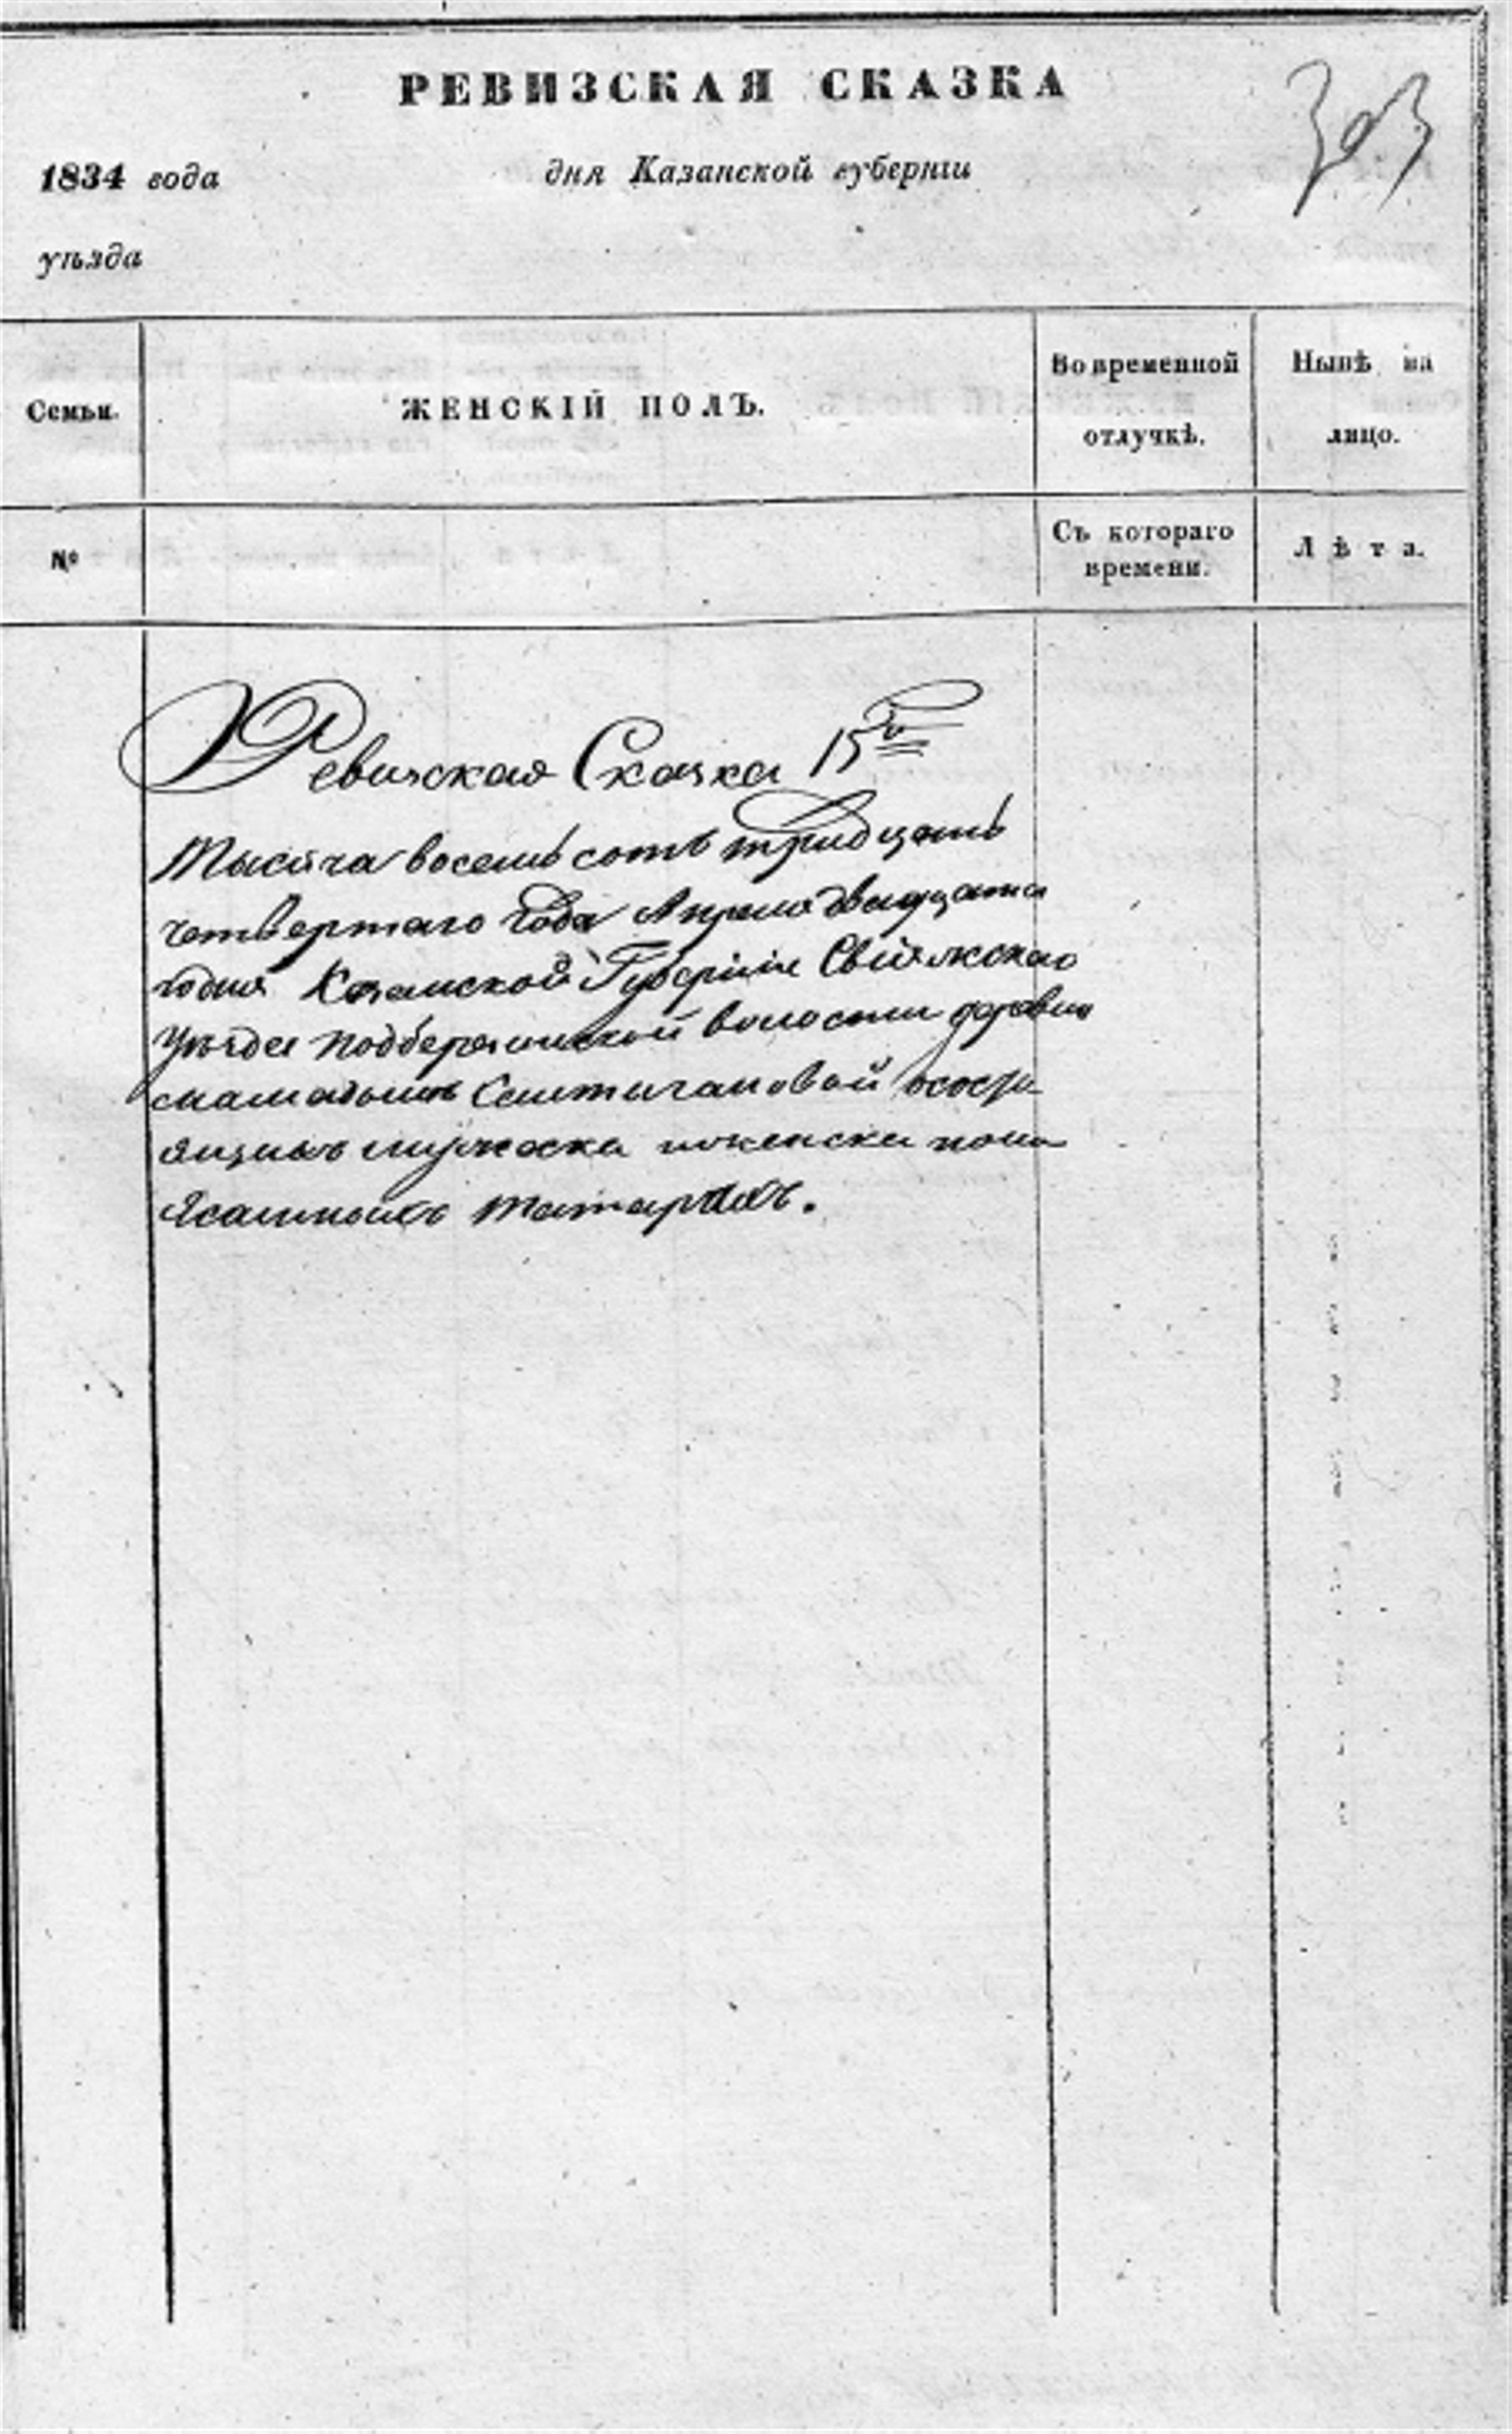 РЕВИЗСКАЯ СКАЗКА
303
1834 года дня Казанской губернiи
уѣзда
Семьи.
ЖЕНСКІЙ ПОЛЪ.
Во временной отлучкѣ.
Нынѣ на лицо.
№
Съ котораго времени.
Лѣта.
Ревизская Сказка 15
Тысяча восемь сотъ тридцать
четвертаго года Апреля двадцата
годня Казанской Губернiи Свiяжскаго
Уѣзда подберезинской волости деревни
Ясашныхъ татарахъ.